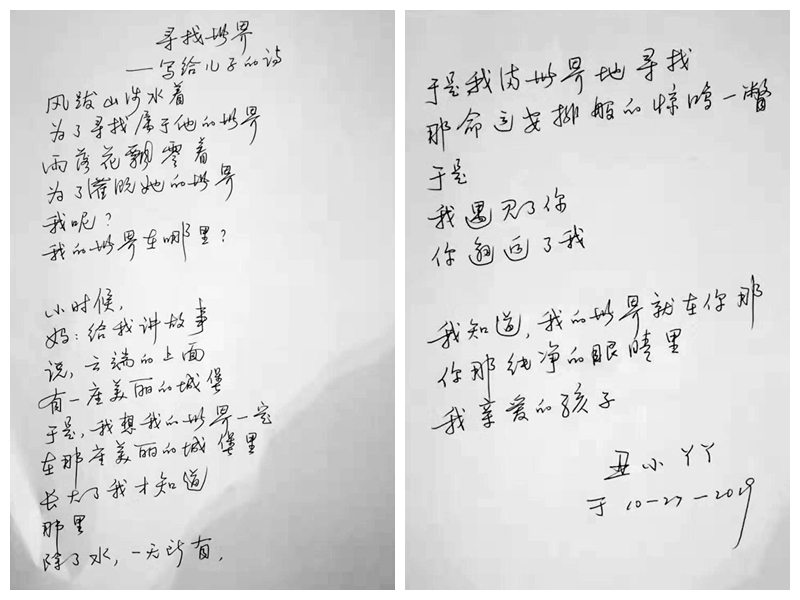 寻找世界
——写给儿子的诗
风跋山涉水着
为了寻找属于他的世界
雨落花飘零着
为了灌脱她的世界
我呢？
我的世界在哪里？
小时候，
妈：给我讲故事
说，云端的上面
有一座美丽的城堡
于是，我想我的世界一定
在那座美丽的城堡里
长大了我才知道
那里
除了水，一无所有，
于是我满世界地寻找
那命运安排般的惊鸿一瞥
于是
我遇见了你
你邂逅了我
我知道，我的世界就在你那
你那纯净的眼睛里
我亲爱的孩子
丑小丫丫
于10-27-2019